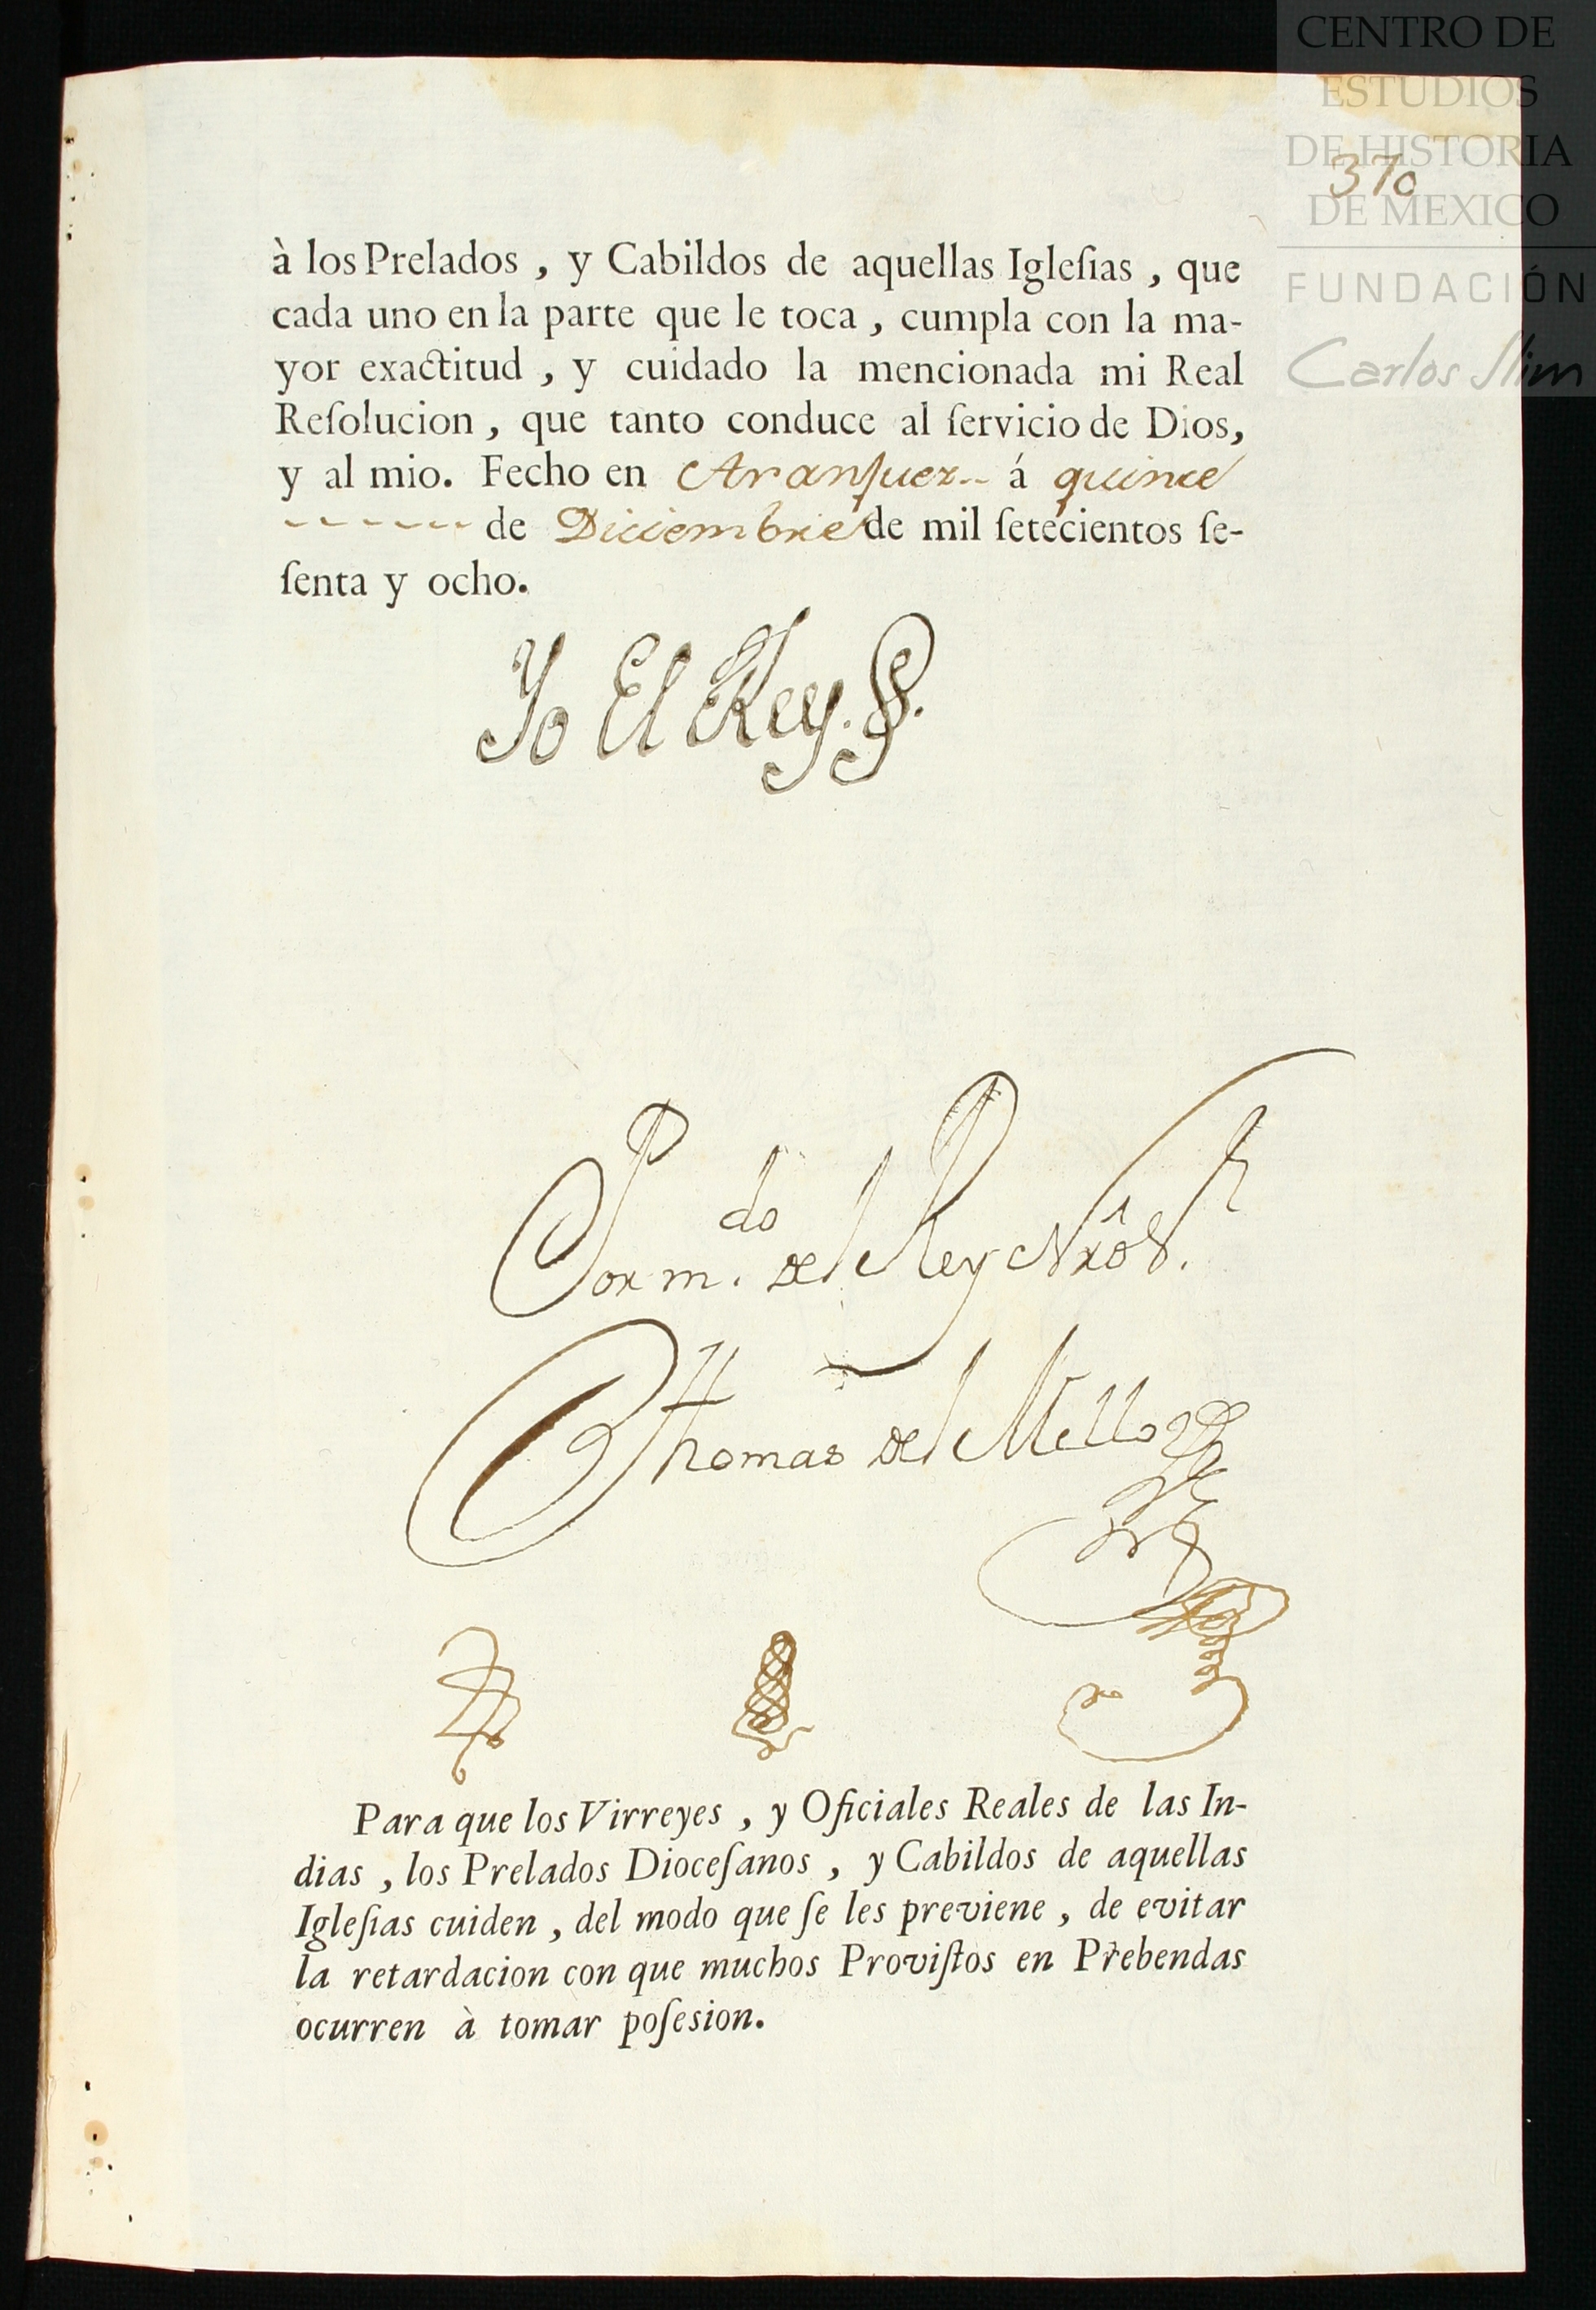 CENTRO DE
ESTUDIOS
DE HISTORIA
DE MEXICO
FUNDACIÓN
Carlos Slim
370
à los Prelados , y Cabildos de aquellas Igleſias , que
cada uno en la parte que le toca , cumpla con la ma-
yor exactitud , y cuidado la mencionada mi Real
Reſolucion , que tanto conduce al ſervicio de Dios,
y al mio. Fecho en Aranjuez-- á quince
------- de Diciembre de mil ſetecientos ſe-
ſenta y ocho.
Yo El Rey.
Por m.do del Rey Nrô S.r
Thomas del Mello
Para que los Virreyes , y Oficiales Reales de las In-
dias , los Prelados Dioceſanos , y Cabildos de aquellas
Igleſias cuiden , del modo que ſe les previene , de evitar
la retardacion con que muchos Proviſtos en Prebendas
ocurren à tomar poſesion.